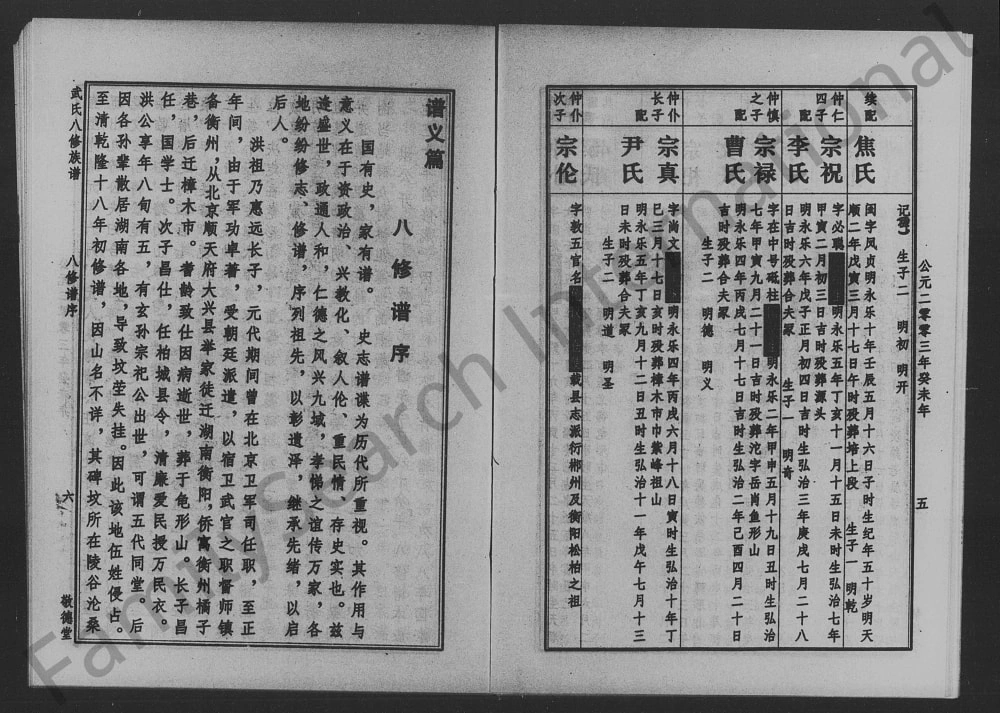 公元二零零三年癸未年
五
续配
焦氏
记
生子二 明初 明开
闺字凤贞明永乐十年壬辰五月十六日子时生纪年五十岁明天
顺二年戊寅三月十七日午时殁葬培上段 生子一 明乾
仲仁四子
宗祝
字必聪
明永乐五年丁亥十一月十五日未时生弘治七年
甲寅二月初三日吉时殁葬源头
配
李氏
明永乐六年戊子正月初四日吉时生弘治三年庚戌七月二十八
日吉时殁葬合夫冢 生子一 明奇
仲慎之子
宗禄
字在中号砥柱
明永乐二年甲申五月十九日丑时生弘治
七年甲寅九月二十一日吉时殁葬沱字岳肖鱼形山
配
曹氏
明永乐四年丙戌七月十七日吉时生弘治二年己酉四月二十日
吉时殁葬合夫冢 生子二 明德 明义
仲仆长子
宗真
字尚文
明永乐四年丙戌六月十八日寅时生弘治十年丁
巳三月十七日亥时殁葬樟木市巾紫峰祖山
配
尹氏
明永乐五年丁亥九月十二日丑时生弘治十一年戊午七月十三
日未时殁葬合夫冢 生子二 明道 明圣
仲仆次子
宗伦
字敦五官名
载县志派衍郴州及衡阳松柏之祖
谱义篇
八修谱序
国有史，家有谱。 史志谱谍为历代所重视。其作用与
意义在于资政治、兴教化、叙人伦、重民情、存史实也。兹
逢盛世，政通人和，仁德之风兴九域，孝悌之谊传万家，各
地纷纷修志、修谱，序列祖先，以彰遗泽，继承先绪，以启
后人。
洪祖乃惠远长子，元代期间曾在北京卫军司任职，至正
年间，由于军功卓著，受朝廷派遣，以宿卫武官之职督师镇
备衡州，从北京顺天府大兴县举家徒迁湖南衡阳，侨寓衡州橘子
巷，后迁樟木市。耆龄致仕因病逝世，葬于龟形山。长子昌
任，国学士。次子昌仕，任柏城县令，清廉爱民授万民衣。
洪公享年八旬有五，有玄孙宗祀公出世，可谓五代同堂。后
因各孙辈散居湖南各地，导致坟茔失挂。因此该地伍姓侵占。
至清乾隆十八年初修谱，因山名不详，其碑坟所在陵谷沦桑
武氏八修族谱
八修谱序
六
敬德堂
FamilySearch International